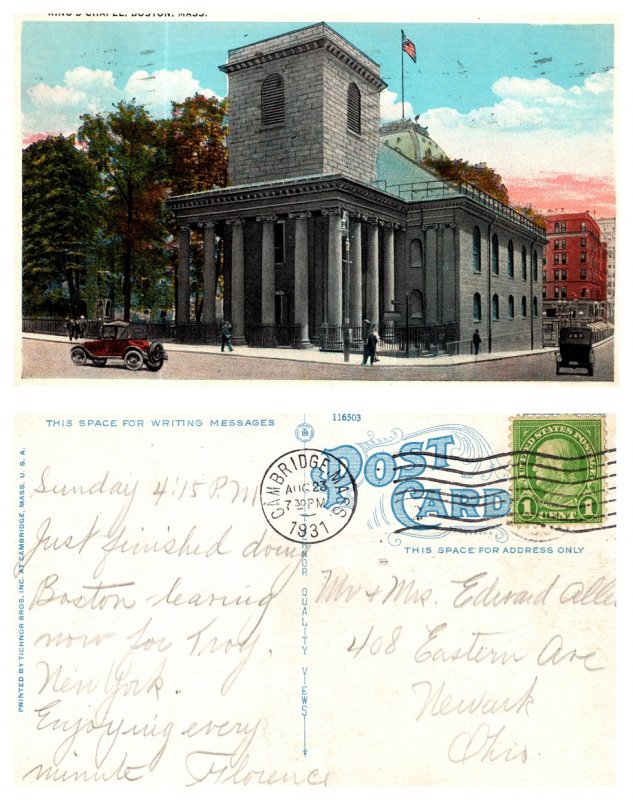 KING'S CHAPEL, BOSTON, MASS.
THIS SPACE FOR WRITING MESSAGES
116503
POST CARD
THIS SPACE FOR ADDRESS ONLY
CAMBRIDGE, MASS.
AUG 23
7 30 PM
1931
UNITED STATES POSTAGE
1 CENT 1
PRINTED BY TICHNOR BROS. INC. AT CAMBRIDGE, MASS. U. S. A.
QUALITY VIEWS
Sunday 4:15 P.M
Just finished doing
Boston - leaving
now for Troy.
New York.
Enjoying every
minute Florence
Mr & Mrs. Edward Allen
408 Eastern Ave
Newark
Ohio.